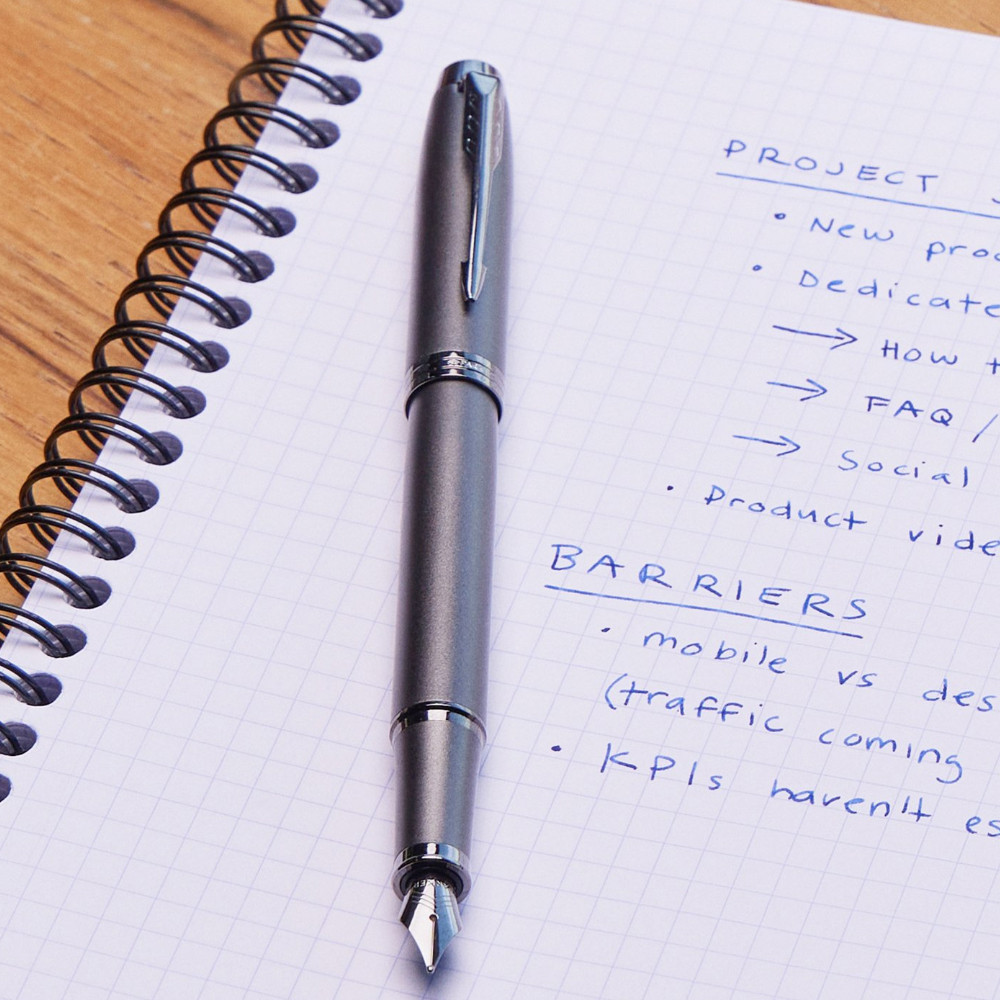 PROJECT
• New
• Dedicate
→ How
→ FAQ /
→ Social
• Product
BARRIERS
• mobile vs
(traffic coming
• KPIs haven't